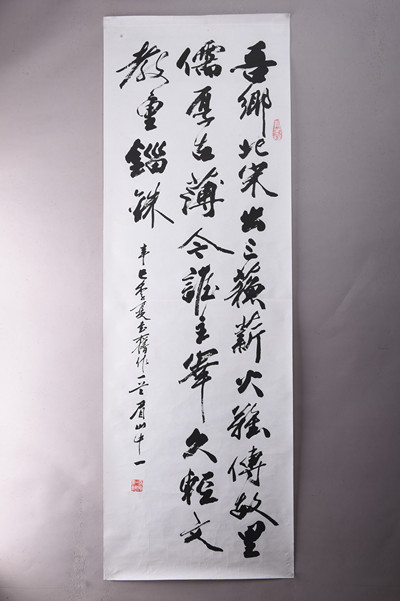 吾鄉北宋出三蘇薪火難傳故里
儒厚古薄今誰主宰久輕文
教重錙銖
辛巳季夏書舊作一首眉山牛一